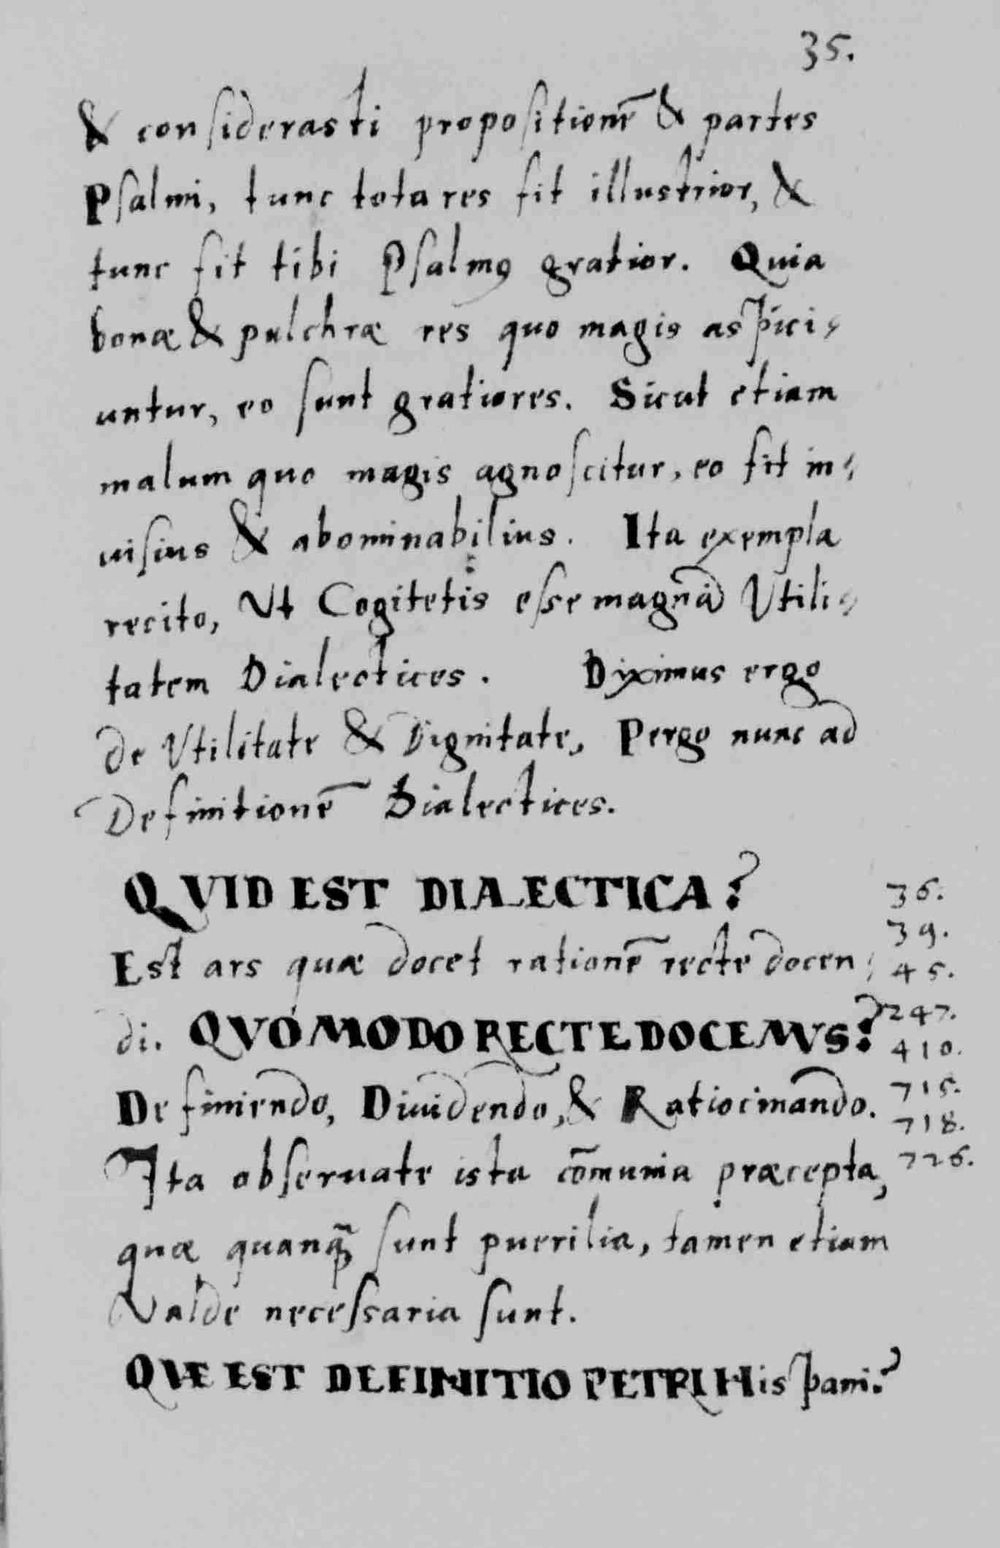 35.
& considerasti propositionē & partes
Psalmi, tunc tota res fit illustrior, &
tunc fit tibi Psalmꝰ gratior. Quia
bonæ & pulchræ res quo magis asꝑici⸗
untur, eo sunt gratiores. Sicut etiam
malum quo magis agnoscitur, eo fit in⸗
uisius & abominabilius. Ita exempla
recito, Ut Cogitetis esse magnā Vtili⸗
tatem Dialectices. Diximus ergo
de Vtilitate & Dignitate, Pergo nunc ad
Definitionē Dialectices.
QVID EST DIALECTICA? 36.
39.
Est ars quæ docet rationē recte docen⸗ 45.
di. QVOMODO RECTE DOCEMVS? 247.
410.
Definiendo, Diuidendo, & Ratiocinando. 715.
718.
Ita obseruate ista cōmunia præcepta, 726.
quæ quanꝗ̃ sunt puerilia, tamen etiam
Valde necessaria sunt.
QVE EST DEFINITIO PETRI Hisꝑani?